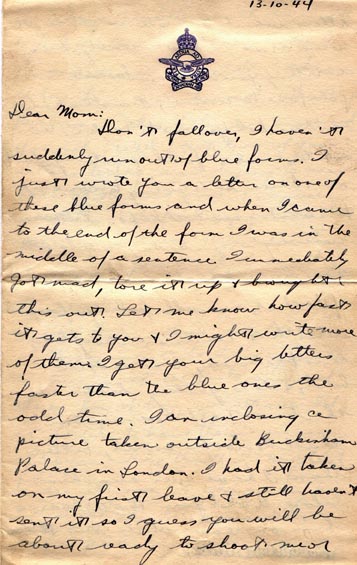 13-10-44
Dear Mom:
Don't fall over, I haven't
suddenly run out of blue forms. I
just wrote you a letter on one of
these blue forms and when I came
to the end of the form I was in the
middle of a sentence I immediately
got mad, tore it up & brought
this out. Let me know how fast
it gets to you & I might write more
of them. I get your big letters
faster than the blue ones the
odd time. I am inclosing a
picture taken outside Buckinham
Palace in London. I had it taken
on my first leave & still haven't
sent it so I guess you will be
about ready to shoot me or